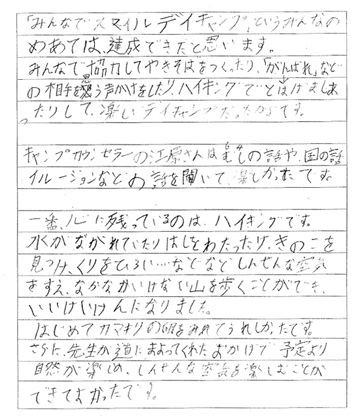 「みんなでスマイルデイキャンプ」というみんなの
めあては、達成できたと思います。
みんなで協力してやきそばをつくったり、「がんばれ」など
の相手を思う声かけをしたり、ハイキングで
たりして、楽しいデイキャンプだったからです。
キャンプカウンセラーの江原さんは の話や、国の話
イルージョンなどの話を聞いて、楽しかったです。
一番、心に残っているのは、ハイキングです。
水がながれていたりはしをわたったり、きのこを
見つけ、くりをひろい…などなどしんせんな空気
をすえ、なかなかいけない山を歩くことができ、
いいけいけんになりました。
はじめてカマキリの卵をみれてうれしかったです。
さらに、先生が道にまよってくれたおかげで予定より
自然が楽しめ、しんせんな空気を楽しむことが
できてよかったです。